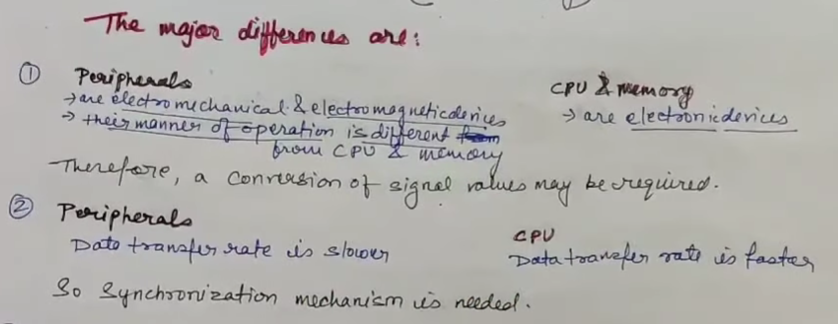 The major differences are:
① Peripherals
→ are electromechanical & electromagnetic devices
→ their manner of operation is different
from CPU & memory
CPU & memory
→ are electronic devices
Therefore, a conversion of signal values may be required.
② Peripherals
Data transfer rate is slower
CPU
Data transfer rate is faster
So Synchronization mechanism is needed.